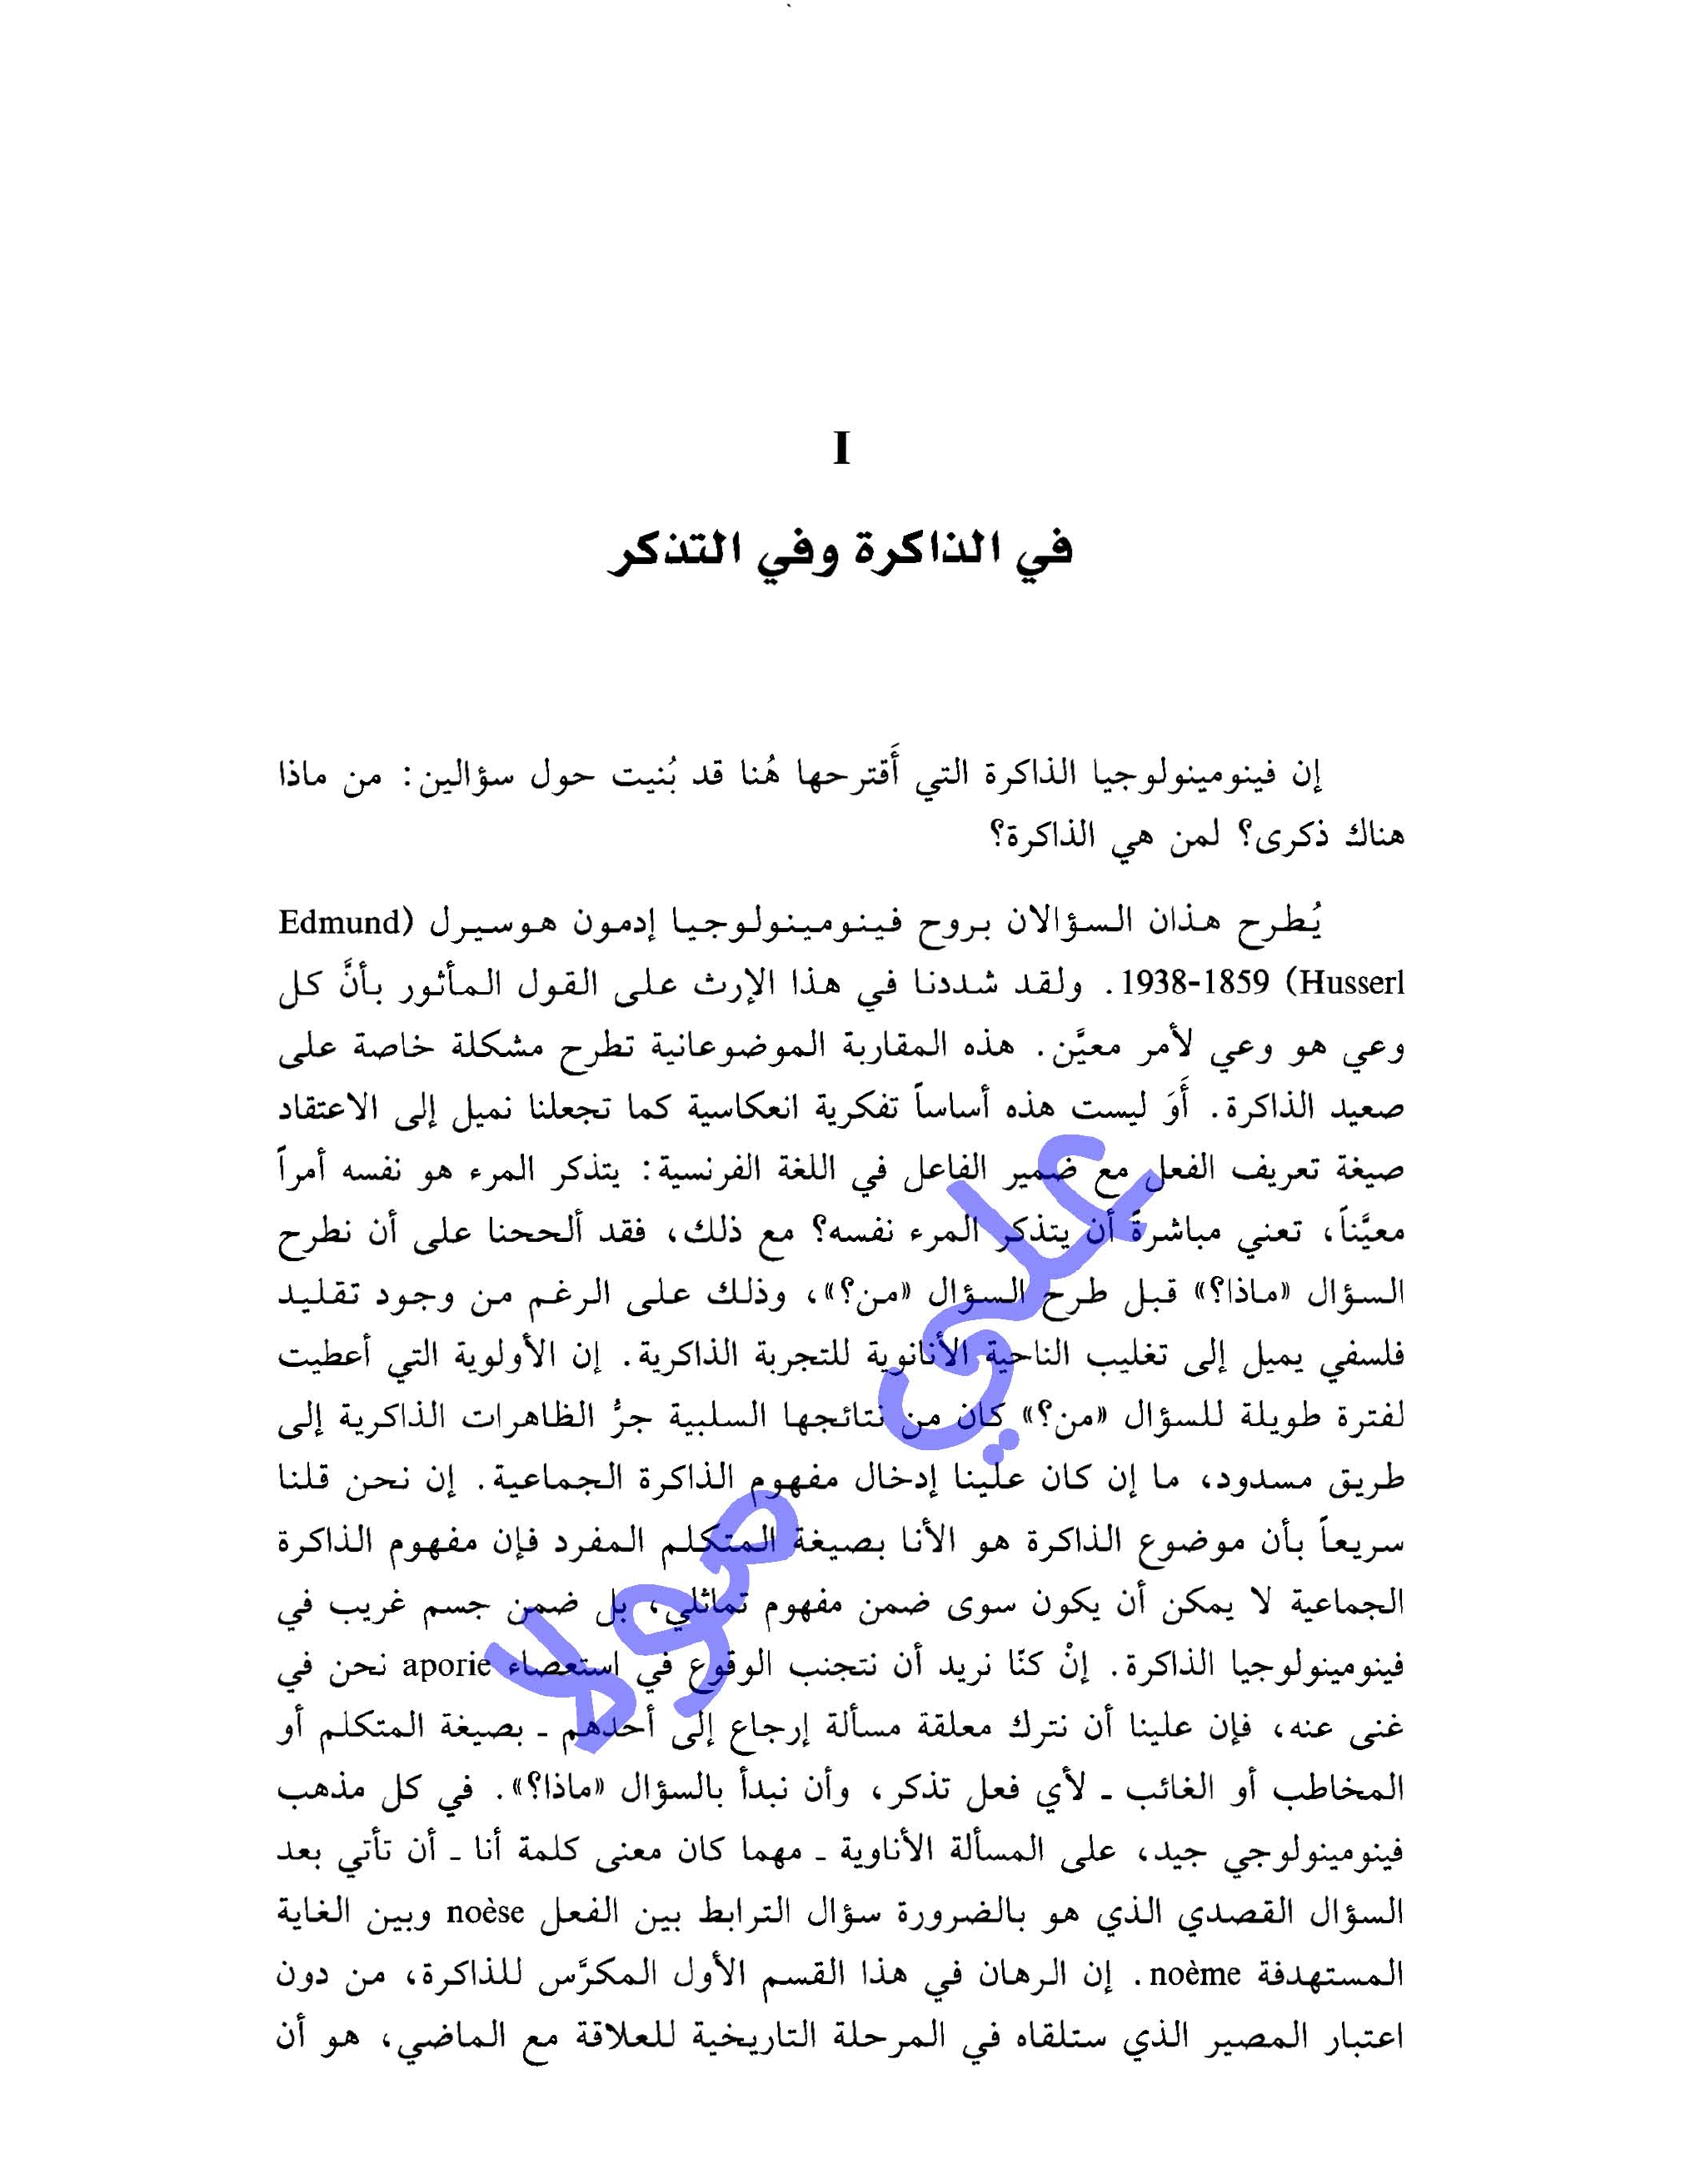 I
في الذاكرة وفي التذكر
إن فينومينولوجيا الذاكرة التي أَقترحها هُنا قد بُنيت حول سؤالين: من ماذا
هناك ذكرى؟ لمن هي الذاكرة؟
يُطرح هذان السؤالان بروح فينومينولوجيا إدمون هوسيرل (Edmund
Husserl) 1938-1859. ولقد شددنا في هذا الإرث على القول المأثور بأنَّ كل
وعي هو وعي لأمر معيَّن. هذه المقاربة الموضوعانية تطرح مشكلة خاصة على
صعيد الذاكرة. أَوَ ليست هذه أساساً تفكرية انعكاسية كما تجعلنا نميل إلى الاعتقاد
صيغة تعريف الفعل مع ضمير الفاعل في اللغة الفرنسية: يتذكر المرء هو نفسه أمراً
معيَّناً، تعني مباشرةً أن يتذكر المرء نفسه؟ مع ذلك، فقد ألححنا على أن نطرح
السؤال «ماذا؟» قبل طرح السؤال «من؟»، وذلك على الرغم من وجود تقليد
فلسفي يميل إلى تغليب الناحية الأنانوية للتجربة الذاكرية. إن الأولوية التي أعطيت
لفترة طويلة للسؤال «من؟» كان من نتائجها السلبية جرُّ الظاهرات الذاكرية إلى
طريق مسدود، ما إن كان علينا إدخال مفهوم الذاكرة الجماعية. إن نحن قلنا
سريعاً بأن موضوع الذاكرة هو الأنا بصيغة المتكلم المفرد فإن مفهوم الذاكرة
الجماعية لا يمكن أن يكون سوى ضمن مفهوم تماثلي، بل ضمن جسم غريب في
فينومينولوجيا الذاكرة. إنْ كنّا نريد أن نتجنب الوقوع في استعصاء aporie نحن في
غنى عنه، فإن علينا أن نترك معلقة مسألة إرجاع إلى أحدهم ـ بصيغة المتكلم أو
المخاطب أو الغائب ـ لأي فعل تذكر، وأن نبدأ بالسؤال «ماذا؟». في كل مذهب
فينومينولوجي جيد، على المسألة الأناوية ـ مهما كان معنى كلمة أنا ـ أن تأتي بعد
السؤال القصدي الذي هو بالضرورة سؤال الترابط بين الفعل noèse وبين الغاية
المستهدفة noème. إن الرهان في هذا القسم الأول المكرَّس للذاكرة، من دون
اعتبار المصير الذي ستلقاه في المرحلة التاريخية للعلاقة مع الماضي، هو أن
علي مولا